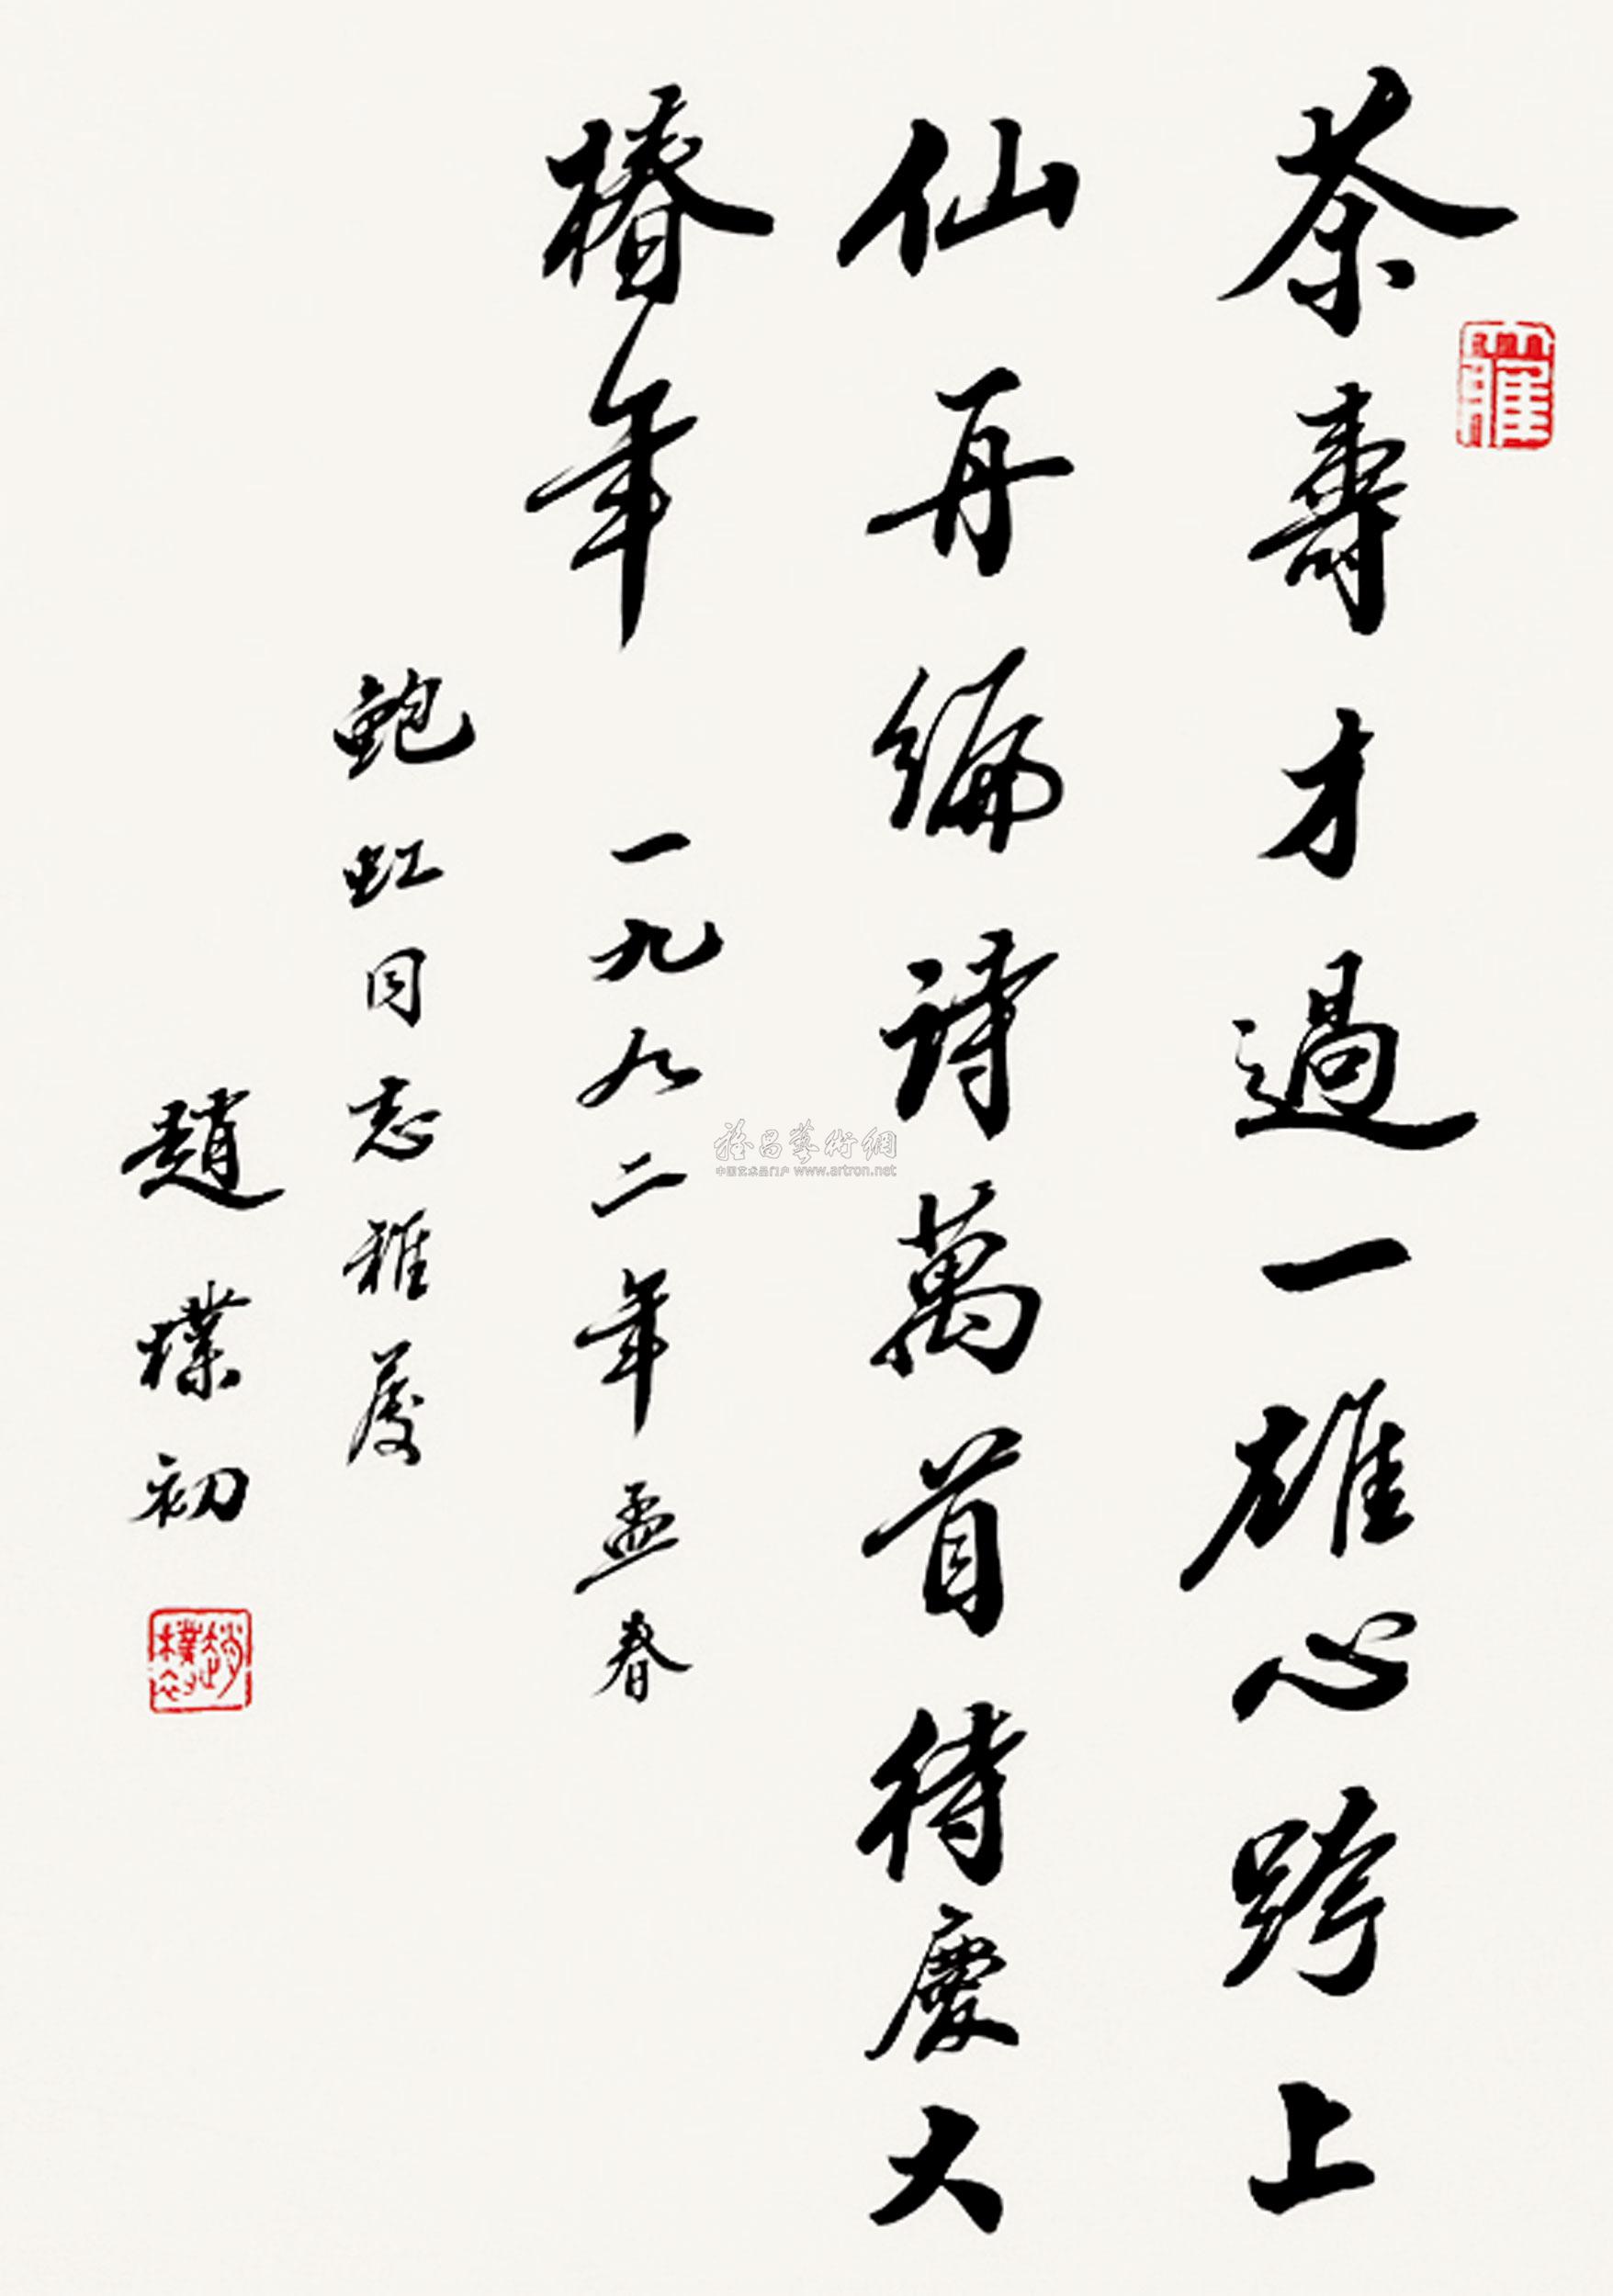 茶壽才過一雄心跨上
仙再編詩萬首待慶大
椿年
一九九二年孟春
鮑虹同志雅屬
趙樸初
雅昌藝術網
中国艺术品门户 www.artron.net